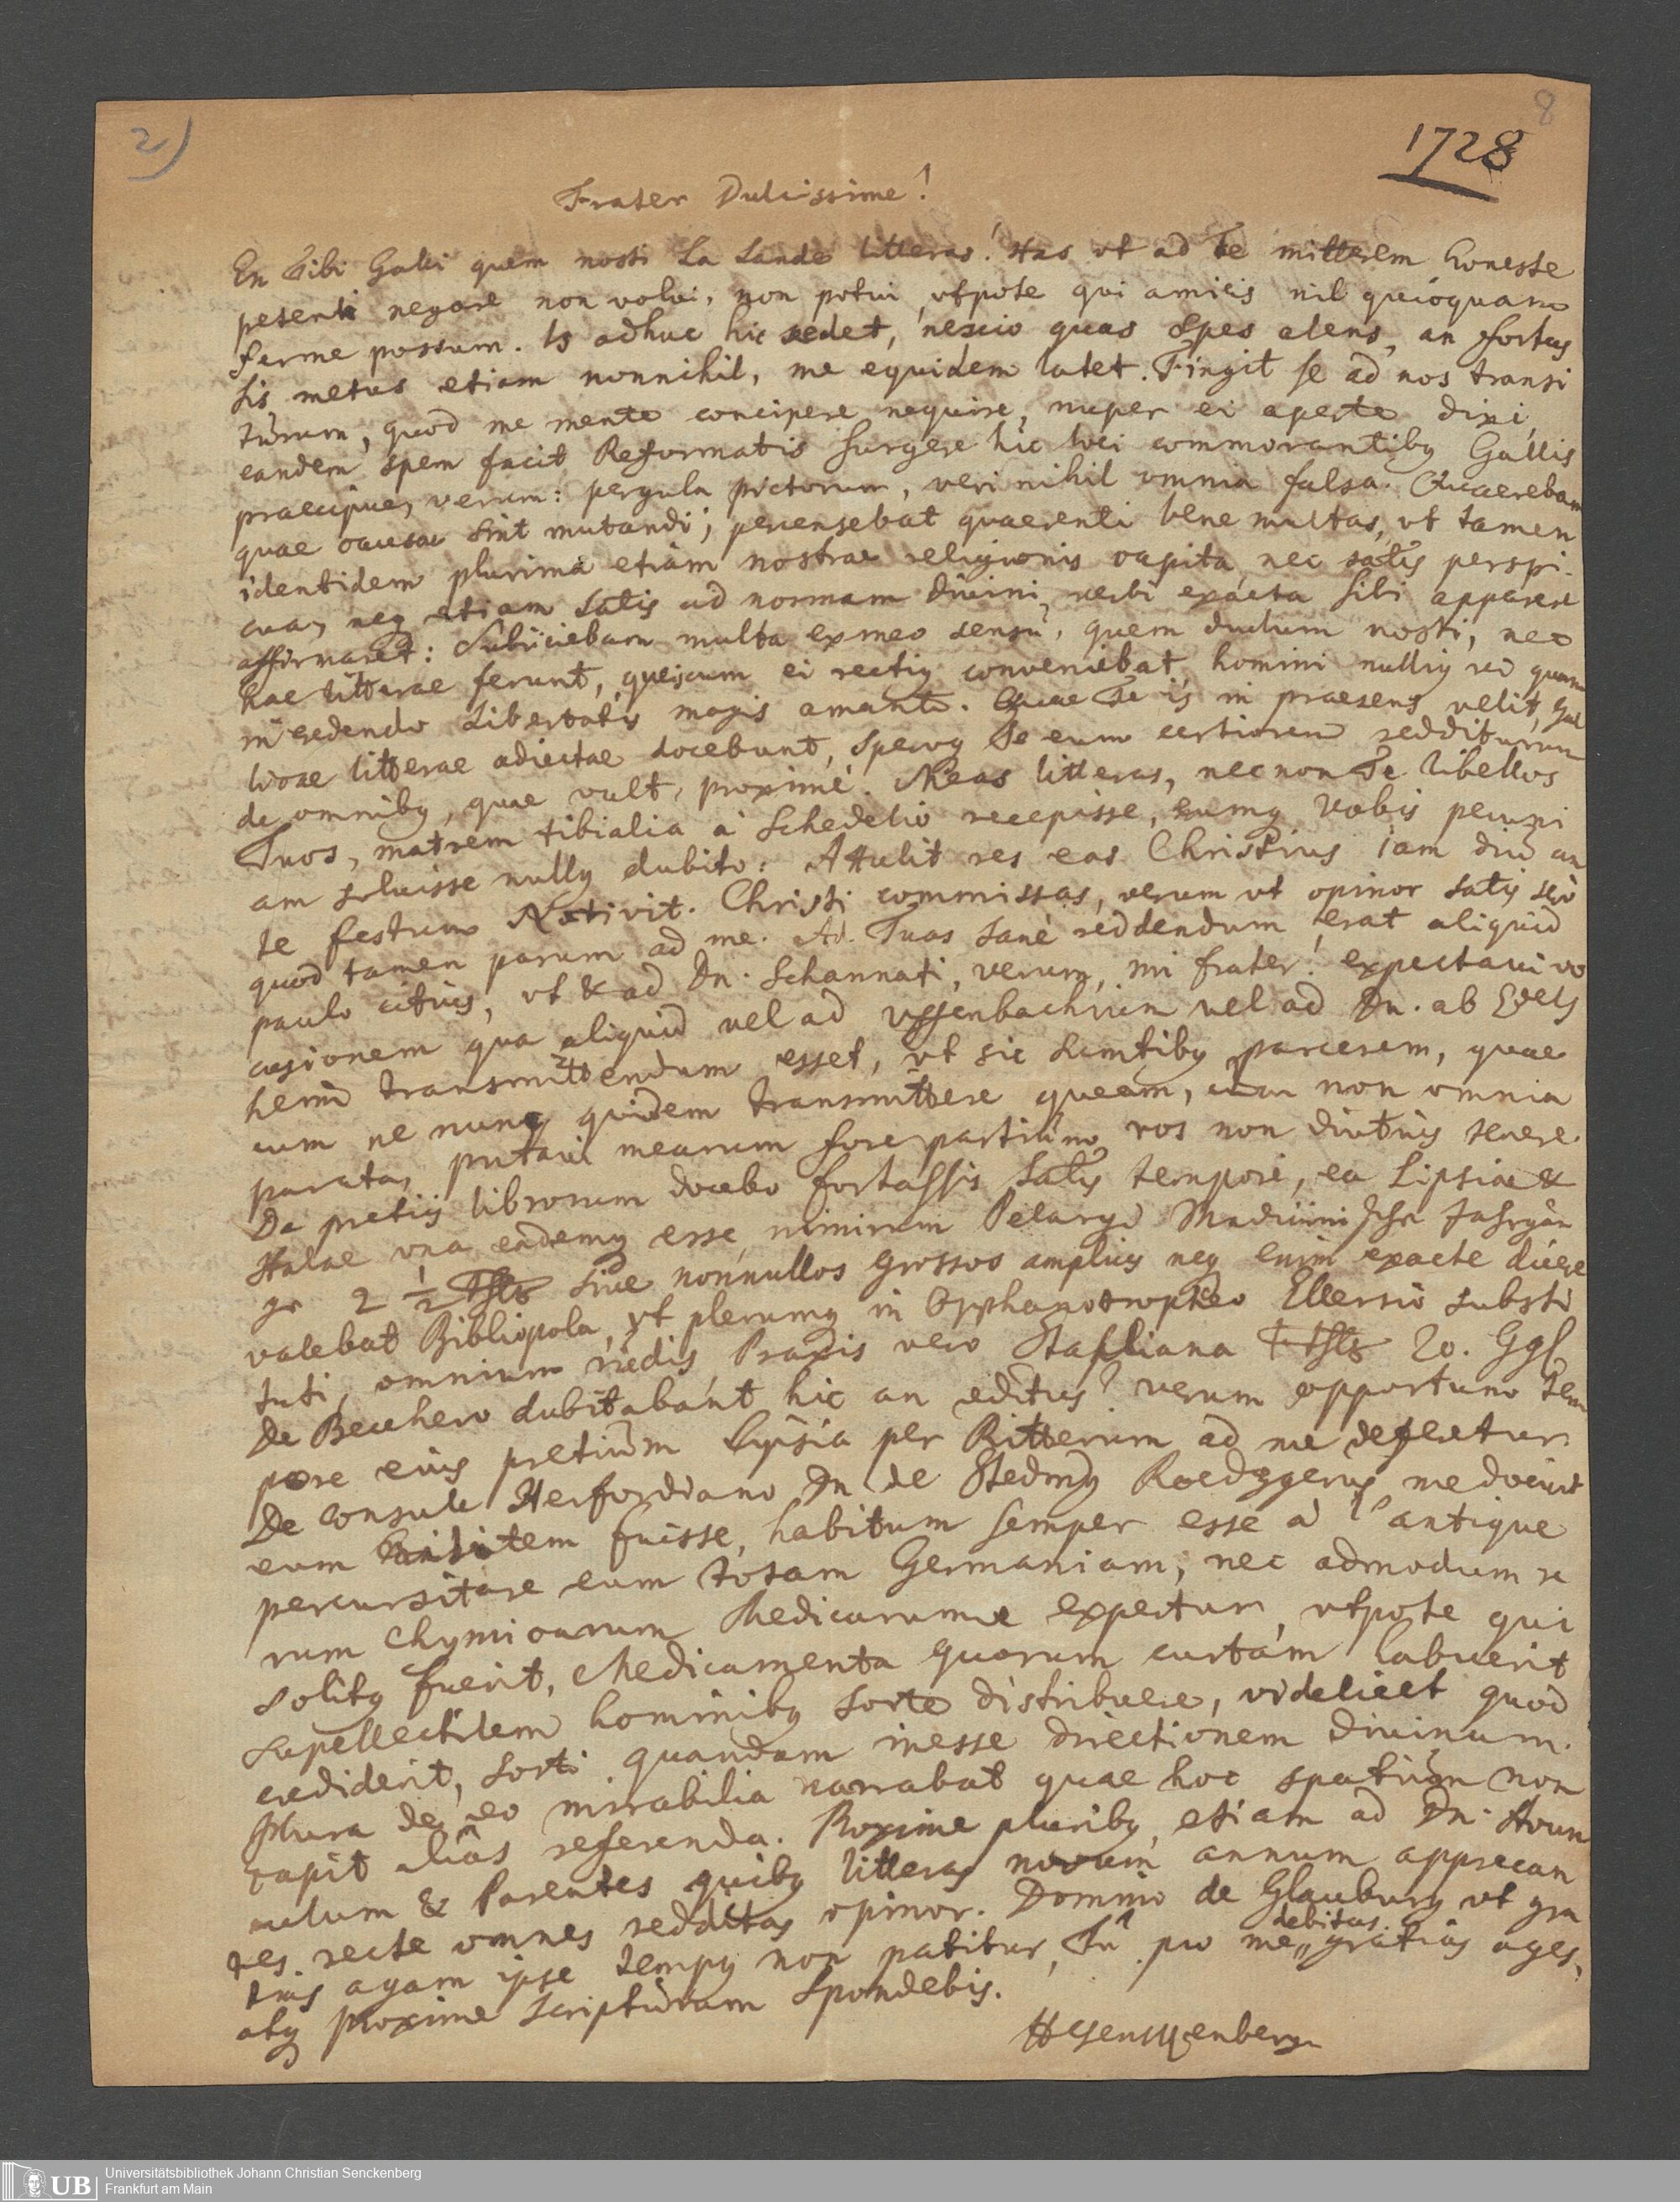 2)
8
1728
Frater Dulcissime!
En Tibi Galli quem nosti La Lande litteras! Has vt ad Te mitterem honeste
petenti negare non volui, non potui, vtpote qui amicis nil quicquam
ferme possum. Is adhuc hic sedet, nescio quas spes alens, an fortas
sis metus etiam nonnihil, me equidem latet. Fingit se ad nos transi
turum, quod me mente concipere nequire, nuper ei aperte dixi,
eandem spem facit Reformatis surgere hic loci commorantibq Gallis
praecipue, verum: pergula pictorum, veri nihil omnia falsa. Quaerebam
quae causae sint mutandi; percensebat quaerenti bene multas, vt tamen
identidem plurima etiam nostrae religionis capita, nec satis perspi-
cua, neq etiam satis ad normam diuini verbi exacta sibi apparere
affirmaret: Subiiciebam multa ex meo sensu, quem dudum nosti, nec
hae litterae ferunt, quejcum ei rectiq conveniebat, homini nulliq rei quam
in credendo libertatis magis amanti. Quae Te is in praesens velit, Gal
licae litterae adiectae docebunt, speroq Te eum certiorem redditurum
de omnibq, quae vult, proxime. Meas litteras, necnon Te libellos
Tuos, matrem tibialia a Schedelio recepisse, eumq Vobis pecuni
am soluisse nullq dubito: Attulit res eas Christius iam diu an
te festum Nativit. Christi commissas, verum vt opinor satis sero
quod tamen parum ad me. Ad Tuas sane reddendum erat aliquid
paulo citius, vt & ad Dn. Schannati, verum, mi frater! expectaui oc
casionem qua aliquid vel ad Vffenbachium vel ad Dn. ab Edels
heim transmittendum esset, vt sic sumtibq parcerem, quae
cum ne nunc quidem transmittere queam, cum non omnia
parata, putaui mearum fore partium vos non diutius tenere.
De pretiis librorum docebo fortassis satis tempore, ea Lipsiae &
Halae vna eademq esse, nimirum Pelargi Medicini sche Jahrgän
ge 2 1/2 Thlr siue nonnullos grossos amplius neq enim exacte dicere
valebat Bibliopola, vt plerumq in Orphanotropheo Ellersio substi
tuti, omnium rudis, Praxis vero Stahliana Thlr 20. Ggl
De Bechero dubitabant hic an editus? verum opportuno tem
pore eius pretium Lipsia per Ritterum ad me defertur
De Consule Herfordiano Dn de Stedinq Roedggerus me docuit
eum tem fuisse, habitum semper esse a l'antique
percursitare eum totam Germaniam, nec admodum re
rum Chymicarum Medicarumue expertum, vtpote qui
solitq fuerit, Medicamenta quorum curtam labuerit
supellectilem hominibq sorte distribuere, videlicet quod
crediderit, sorti quandam inesse directionem diuinam.
Plura de eo mirabilia narrabat quae hoc spatium non
capit alias referenda. Proxime pluribq, etiam ad Dn.
culum & Parentes quibq litteras novum annum apprecan
tes recte omnes redditas opinor. Domino de Glauburg vt gra
tias agam ipse tempq non patitur, Tu pro me debitas gratias ages,
atq proxime scripturam spondebis.
HCSenckenberg
UB
Universitätsbibliothek Johann Christian Senckenberg
Frankfurt am Main